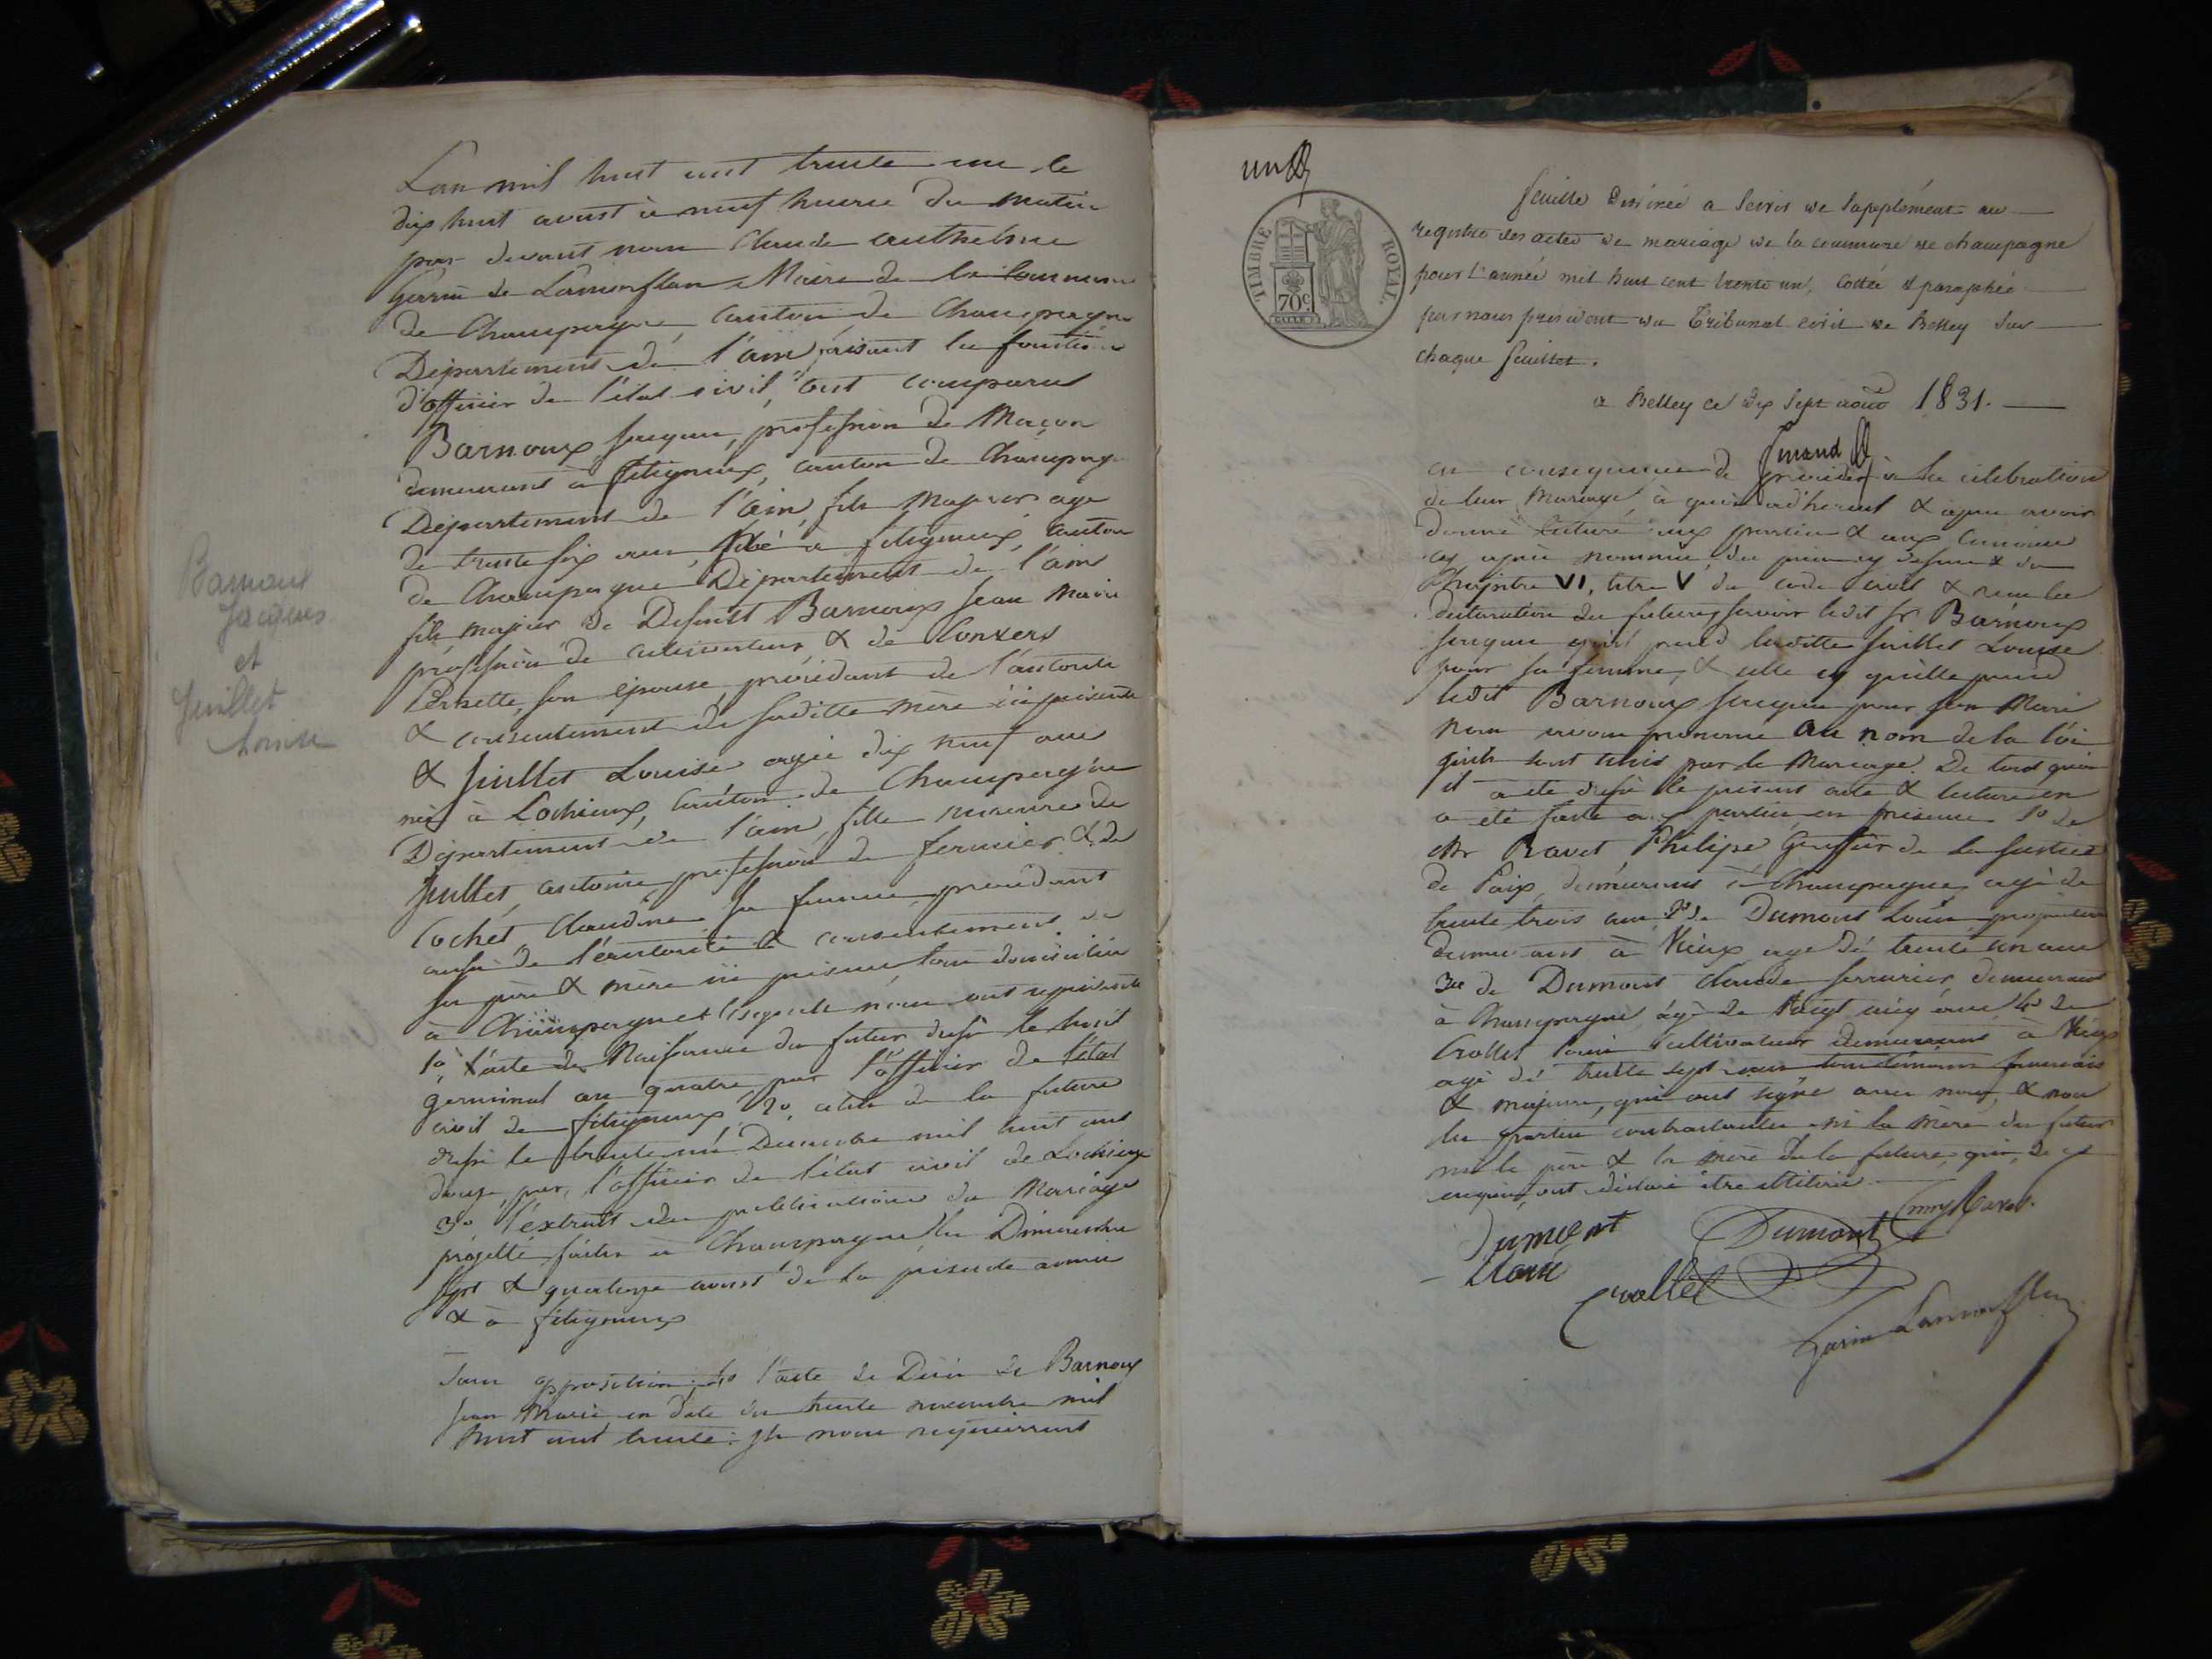 Barnoux
Jacques
et
Juillet
Louise
Lan mil huit cent trente un le
dix huit avout à neuf heures du matin
par devant nous Claude anthelme
Garin de Lamorflan Maire de la Commune
de Champagne, canton de Champagne
Département de l'ain faisant les fonctions
d'officier de l'état civil, ont comparus
Barnoux Jacques, profession de Maçon
demeurant à fitigneux, canton de Champagne
Département de l'ain, fils majeur age
de trente six ans, né à fitigneux, canton
de Champagne Département de l'ain
fils majeur de Défunt Barnoux Jean Marie
profession de cultivateur & de Convers
Pernette, son épouse, procédant de l'autorité
& consentement de saditte mère ici présente
& Juillet Louise agée dix neuf ans
née à Lochieux, Canton de Champagne
Département de l'ain, fille mineure de
Juillet, antoine, profession de fermier & de
Cochet Claudine sa femme, procédant
aussi de l'autorité & consentement de
ses père & mère ici présens tous domiciliés
à Champagne lesquels nous ont représenté
1º l'acte de Naissance du futur dressé le huit
germinal an quatre, par l'officier de l'état
civil de fitigneux 2º celui de la future
dressé le trente un Décembre mil huit cent
douze, par l'officier de l'état civil de Lochieux
3º l'extrait des publications du Mariage
projetté faites à Champagne les Dimanches
sept & quatorze avout de la présente année
& à fitigneux
Sans opposition 4º l'acte de Décès de Barnoux
Jean Marie en date du trente novembre mil
huit cent trente. Ils nous requierrent
un
TIMBRE ROYAL.
70c
feuille destinée a servir de supplément au
registre des actes de mariage de la commune de champagne
pour l'année mil huit cent trente un, cottée & paraphée
par nous president du Tribunal civil de Belley sur
chaque feuillet.
a Belley ce dix sept août 1831.
en conséquence de procéder à la célébration
de leur Mariage, à quoi adhérant & après avoir
donné lecture aux parties & aux témoins
cy après nommés, des pièces cy dessus & du
Chapitre VI, titre V du code civil & reçu les
declaration des futurs, savoir ledit Sr Barnoux
Jacques qu'il prend laditte Juillet Louise
pour sa femme, & celle cy qu'elle prend
ledit Barnoux Jacques pour son Mari
Nous avons prononcé Au nom de la loi
qu'ils sont unis par le Mariage. De tout quoi
il a été dressé le présent acte & lecture en
a été faite aux parties en présence 1º de
Mr Ravet Philipe Greffier de la Justice
de Paix, demeurant à Champagne, agé de
trente trois ans 2º de Dumont Louis propriétaire
demeurant à Vieux agé de trente un ans
3º de Dumont Claude serrurier, demeurant
à Champagne, âgé de vingt cinq ans 4º de
Crollet Louis cultivateur demeurant à Vieux
agé de trente sept ans tous témoins francais
& majeurs, qui ont signé avec nous, & non
les parties contractantes ni la mère du futur
ni le père & la mère de la future, qui, de ce
enquis, ont déclaré être illitérés
Dumont Dumont Ravet.
Claude Crollet
Garin Lamorflan